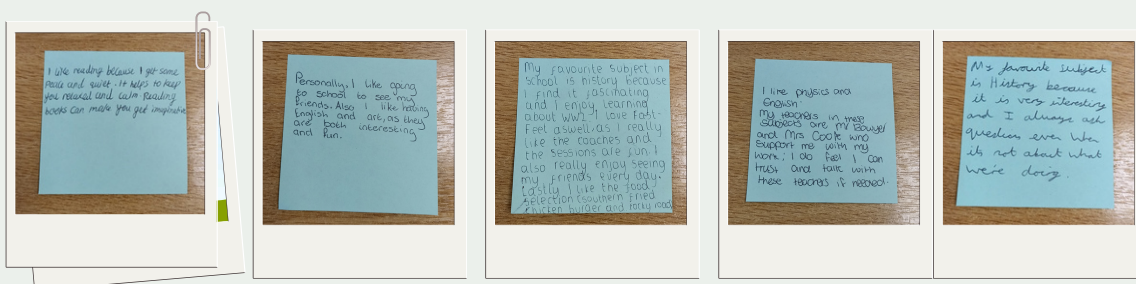 I like reading because I get some
peace and quiet. It helps to keep
you relaxed and calm. Reading
books can make you get imaginative
Personally, I like going
to school to see my
friends. Also I like having
English and art, as they
are both interesting
and fun.
My favourite subject in
school is history because
I find it fascinating
and I enjoy learning
about WW2. I love Fast-
Feel aswell as I really
like the coaches and
the sessions are fun. I
also really enjoy seeing
my friends every day.
Lastly I like the food
selection (southern fried
chicken burger and rocky road
I like physics and
English.
My teachers in these
subjects are Mr Bowyer
and Mrs Coole who
support me with my
work; I do feel I can
trust and talk with
these teachers if needed.
My favourite subject
is History because
it is very interesting
and I always ask
questions even when
its not about what
we're doing.